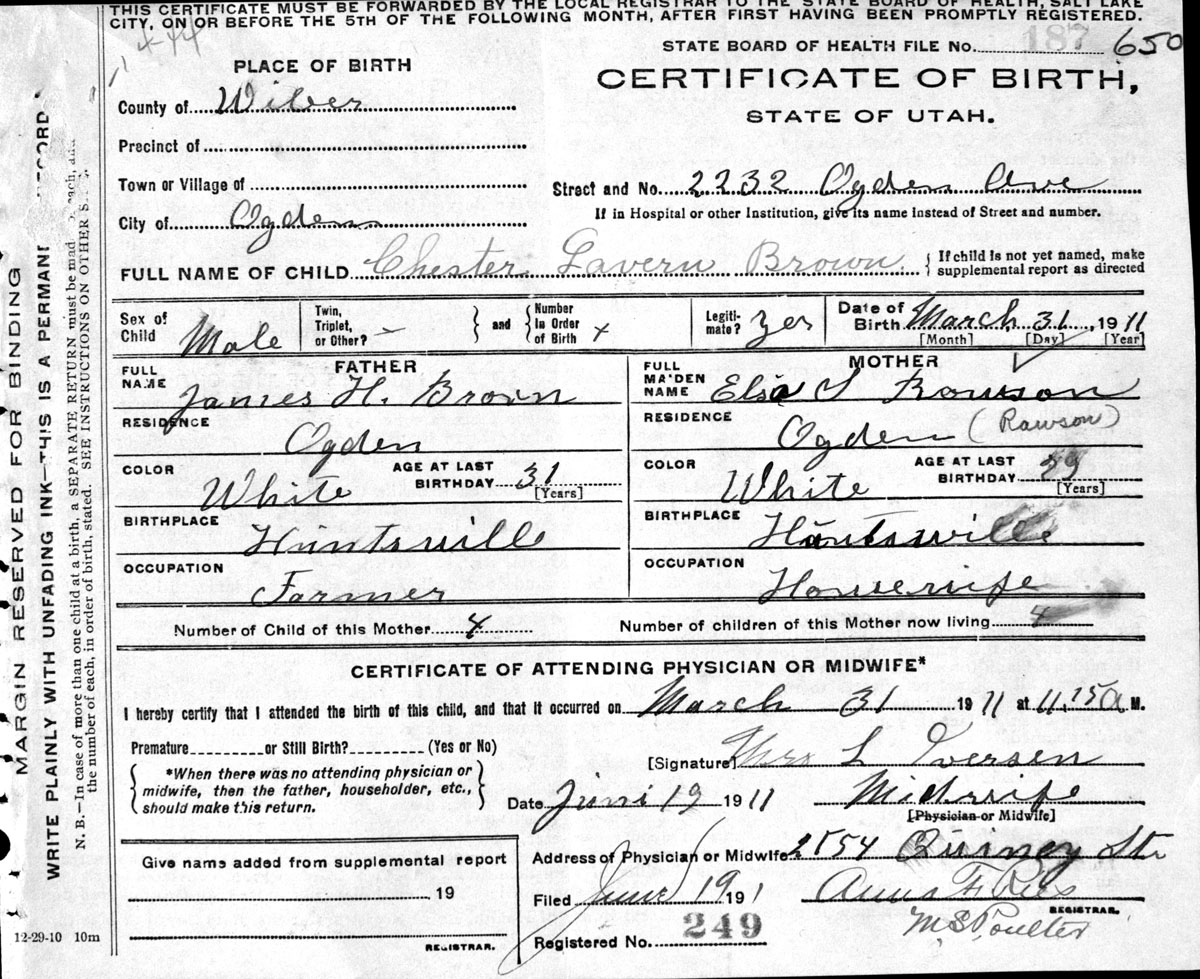 THIS CERTIFICATE MUST BE FORWARDED BY THE LOCAL REGISTRAR TO THE STATE BOARD OF HEALTH, SALT LAKE
CITY, ON OR BEFORE THE 5TH OF THE FOLLOWING MONTH, AFTER FIRST HAVING BEEN PROMPTLY REGISTERED.
STATE BOARD OF HEALTH FILE No. 187 650
PLACE OF BIRTH
CERTIFICATE OF BIRTH,
STATE OF UTAH.
County of Wiber
Precinct of
Town or Village of
Street and No. 2232 Ogden Ave
City of Ogden
If in Hospital or other Institution, give its name instead of Street and number.
FULL NAME OF CHILD Chester Lavern Brown { If child is not yet named, make
supplemental report as directed
Sex of Child Male
Twin, Triplet, or Other? –
} and {
Number in Order of Birth
Legiti-mate? Yes
Date of Birth March 31, 1911
[Month] [Day] [Year]
FATHER
FULL NAME James H. Brown
RESIDENCE Ogden
COLOR White
AGE AT LAST BIRTHDAY 31
[Years]
BIRTHPLACE Huntsville
OCCUPATION Farmer
MOTHER
FULL MAIDEN NAME Elsa S Rowson
RESIDENCE Ogden (Rawson)
COLOR White
AGE AT LAST BIRTHDAY 29
[Years]
BIRTHPLACE Huntsville
OCCUPATION Housewife
Number of Child of this Mother 4
Number of children of this Mother now living 4
CERTIFICATE OF ATTENDING PHYSICIAN OR MIDWIFE*
I hereby certify that I attended the birth of this child, and that it occurred on March 31 1911 at 11.15 a M.
Premature or Still Birth? (Yes or No)
[Signature] Mrs L Iversen
{ *When there was no attending physician or
midwife, then the father, householder, etc.,
should make this return. }
Date Juni 19 1911
Midwife
[Physician or Midwife]
Give name added from supplemental report
19
REGISTRAR.
Address of Physician or Midwife 2554 Quincy Str
Filed June 19 191
REGISTRAR.
M S Poulter
Registered No. 249
12-29-10 10m
MARGIN RESERVED FOR BINDING
WRITE PLAINLY WITH UNFADING INK—THIS IS A PERMANENT RECORD
N. B.—In case of more than one child at a birth, a SEPARATE RETURN must be made each, and
the number of each, in order of birth, stated. SEE INSTRUCTIONS ON OTHER